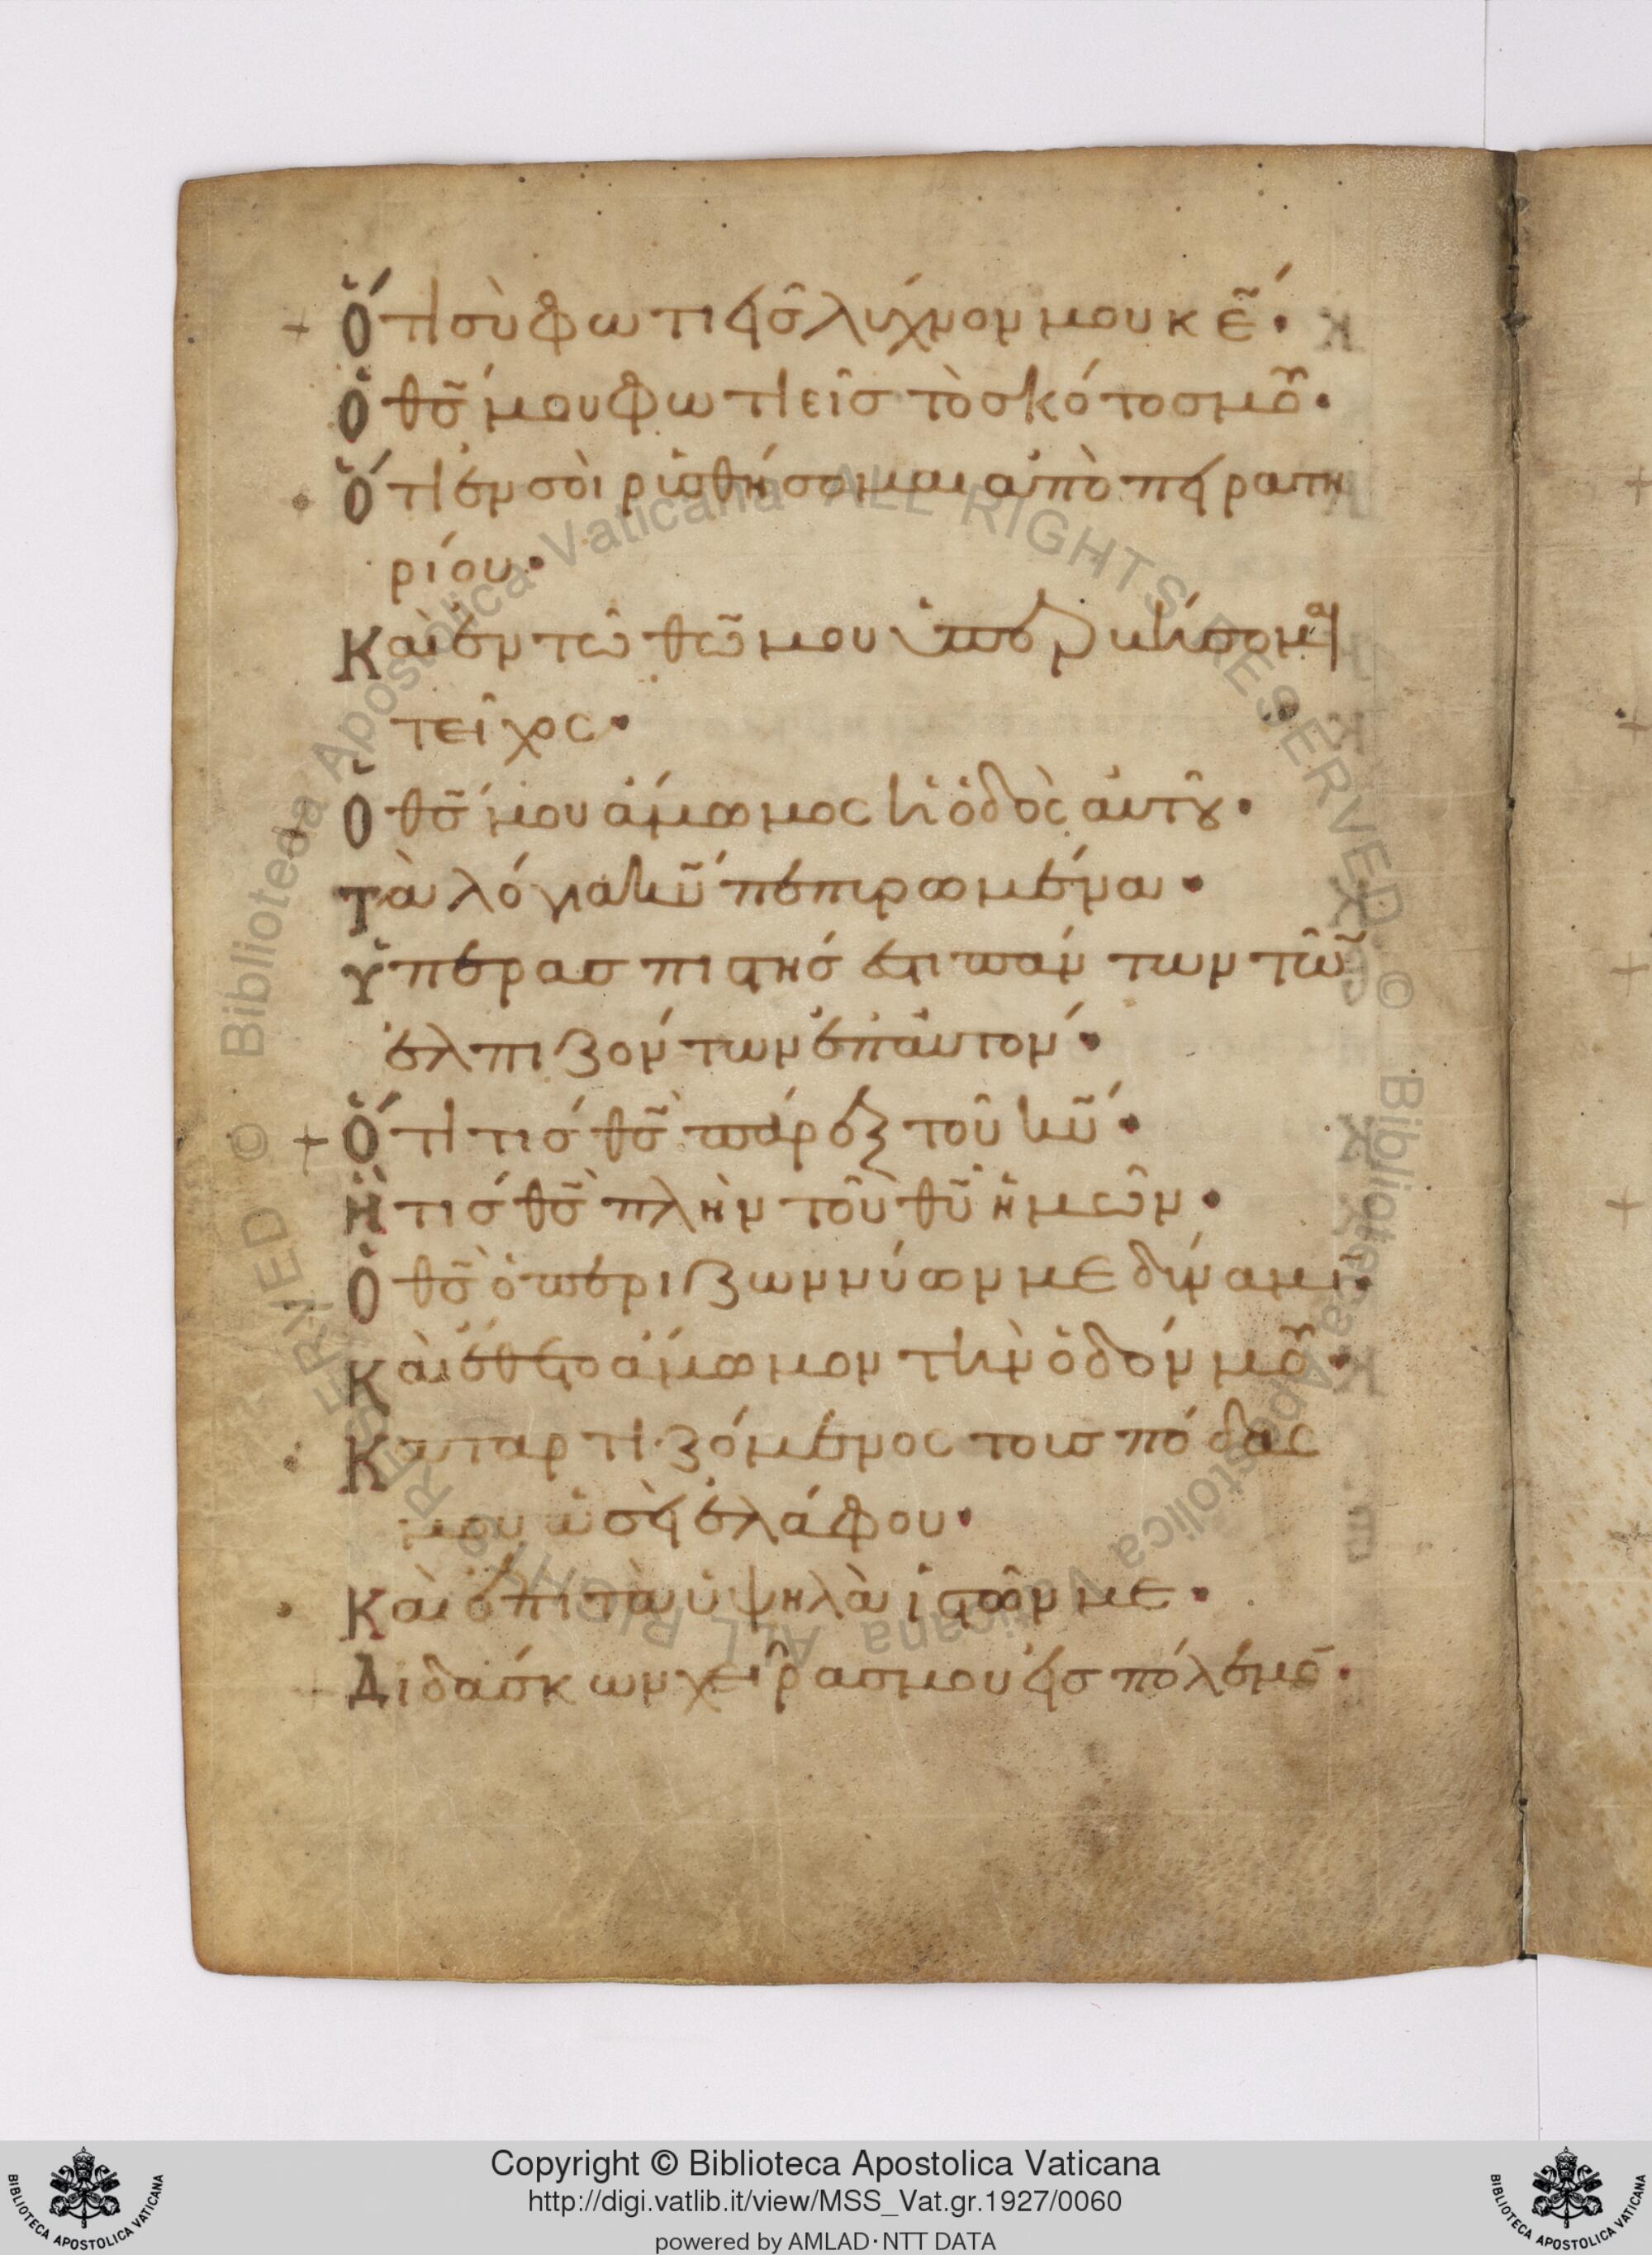 Ὅτι σὺ φωτιεῖς λύχνον μου κε̃·
Ὁ θς̃ μου φωτιεῖς τὸ σκότος μου·
Ὅτι ἐν σοὶ ρυσθήσομαι ἀπὸ πειρατη
ρίου·
Καὶ ἐν τῶ θω̃ μου ὑπερβήσομαι
τεῖχος·
Ὁ θς̃ μου ἄμωμος ἡ ὁδὸς αὐτοῦ·
Τὰ λόγια κυ̃ πεπυρωμένα·
Ὑπερασπιστής ἐστι πάντων τῶν
ἐλπιζόντων ἐπ' αὐτόν·
Ὅτι τίς θς̃ πάρεξ τοῦ κυ̃·
Ἢ τίς θς̃ πλὴν τοῦ θυ̃ ἡμῶν·
Ὁ θς̃ ὁ περιζωννύων με δύναμιν·
Καὶ ἔθετο ἄμωμον τὴν ὁδόν μου·
Καταρτιζόμενος τους πόδας
μου ὡσεὶ ἐλάφου·
Καὶ ἐπὶ τὰ ὑψηλὰ ἱστῶν με·
Διδάσκων χεῖρας μου εἰς πόλεμο̄·
Copyright © Biblioteca Apostolica Vaticana
http://digi.vatlib.it/view/MSS_Vat.gr.1927/0060
powered by AMLAD·NTT DATA
BIBLIOTECA APOSTOLICA VATICANA
BIBLIOTECA APOSTOLICA VATICANA